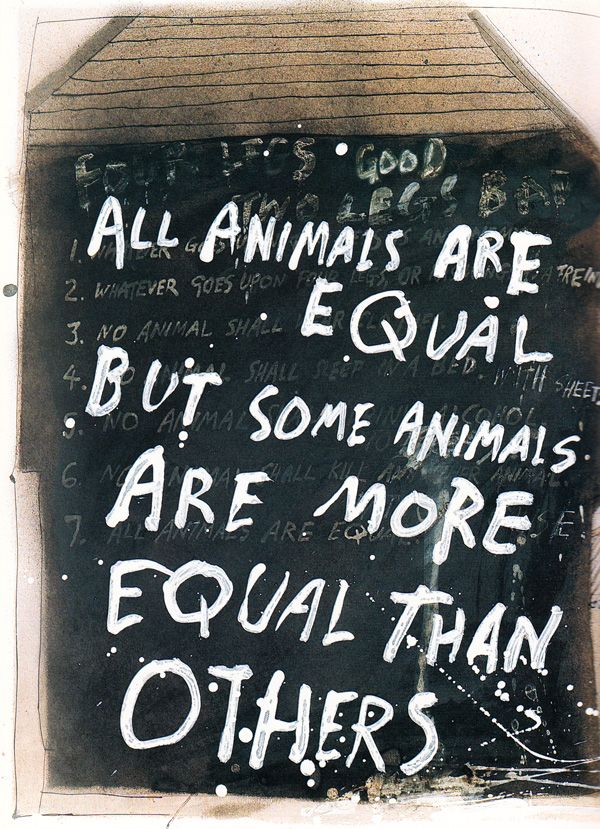 FOUR LEGS GOOD
TWO LEGS BAD
ALL ANIMALS ARE
EQUAL
BUT SOME ANIMALS
ARE MORE
EQUAL THAN
OTHERS
1. WHATEVER GOES UPON
2. WHATEVER GOES UPON FOUR LEGS, OR
3. NO ANIMAL SHALL
4. NO ANIMAL SHALL SLEEP IN A BED. WITH SHEETS
5. NO ANIMAL ALCOHOL
6. NO ANIMAL SHALL KILL ANY OTHER ANIMAL.
7. ALL ANIMALS ARE EQUAL.